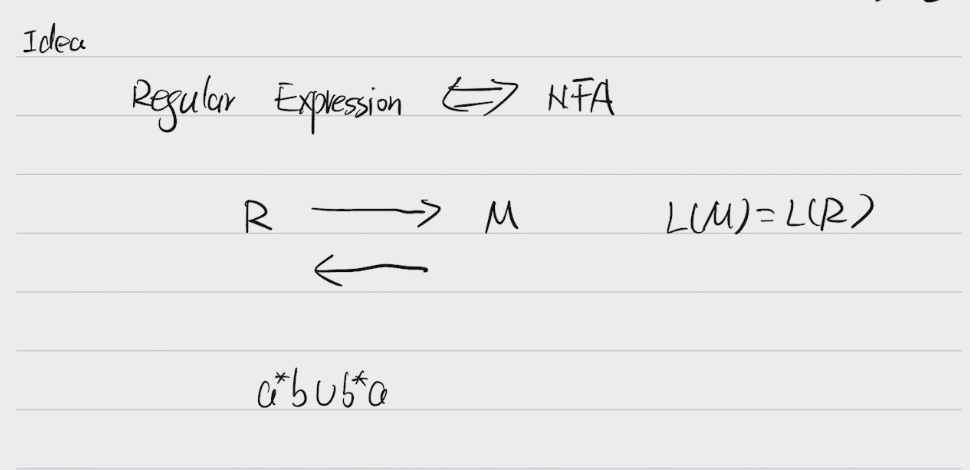 Idea
Regular Expression ⟺ NFA
R ⟶ M L(M)=L(R)
⟵
a*b∪b*a